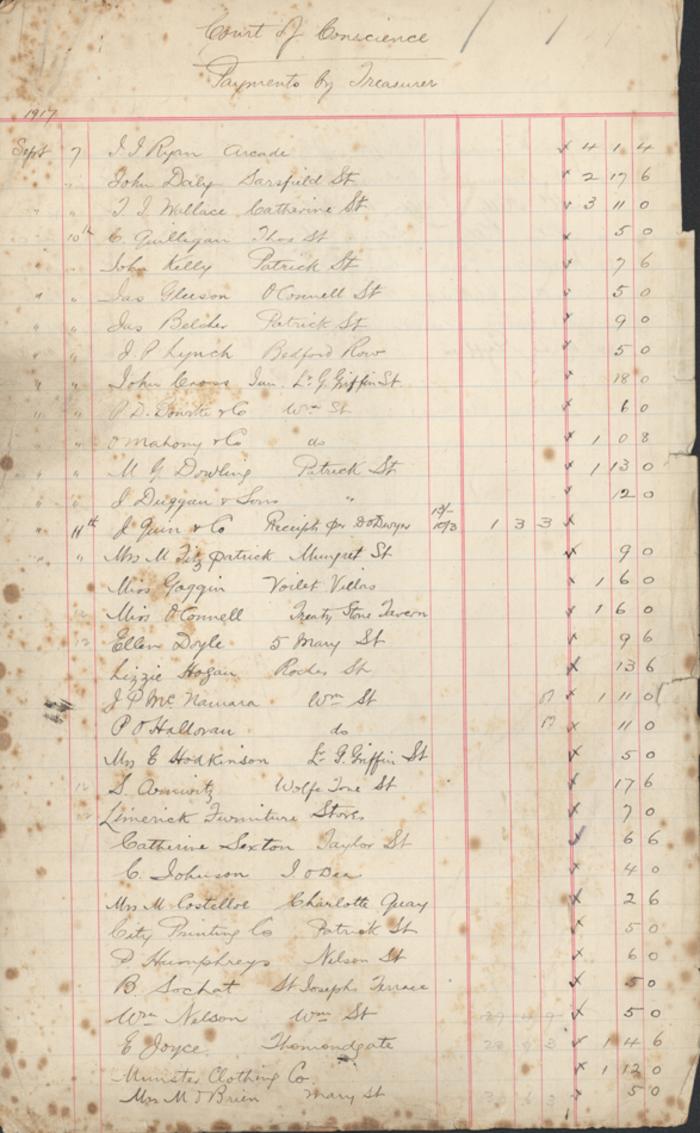 Court of Conscience
Payments by Treasurer
1917
Sept 7 J J Ryan Arcade 4 1 4
" John Daly Sarsfield St 2 17 6
" " T. J. Wallace Catherine St 3 11 0
10th C. Gulligan Thos St 5 0
John Kelly Patrick St 7 6
" " Jas Gleeson O'Connell St 5 0
" " Jas Belcher Patrick St 9 0
" " J. P Lynch Bedford Row 5 0
" " John Cross Jun. Lr. G. Griffin St 18 0
" " P. D. & Co Wm St 6 0
" " O Mahony & Co do 1 0 8
" " M G Dowling Patrick St 1 13 0
" " J Duggan & Sons " 12 0
" 11th J Quin & Co Receipts per 13/- 10/3 1 3 3
" " Mrs M Fitzpatrick Mungret St 9 0
Miss Goggin Voilet Villas 1 6 0
12 Miss O'Connell Treaty Stone Tavern 1 6 0
12 Ellen Doyle 5 Mary St 9 6
Lizzie Hogan Roches St 13 6
J P McNamara Wm St 1 11 0
P O'Halloran do 11 0
Mrs E Hodkinson Lr. G. Griffin St 5 0
12 S. Wolfe Tone St 17 6
Limerick Furniture Stores 7 0
Catherine Sexton Taylor St 6 6
C. Johnson J O'Dea 4 0
Mrs M Costelloe Charlotte Quay 2 6
City Printing Co Patrick St 5 0
P Humphreys Nelson St 6 0
B. Sochat St Josephs Terrace 5 0
Wm Nelson Wm St 5 0
E Joyce Thomondgate 1 4 6
Munster Clothing Co. 1 12 0
Mrs M O'Brien Mary St 5 0